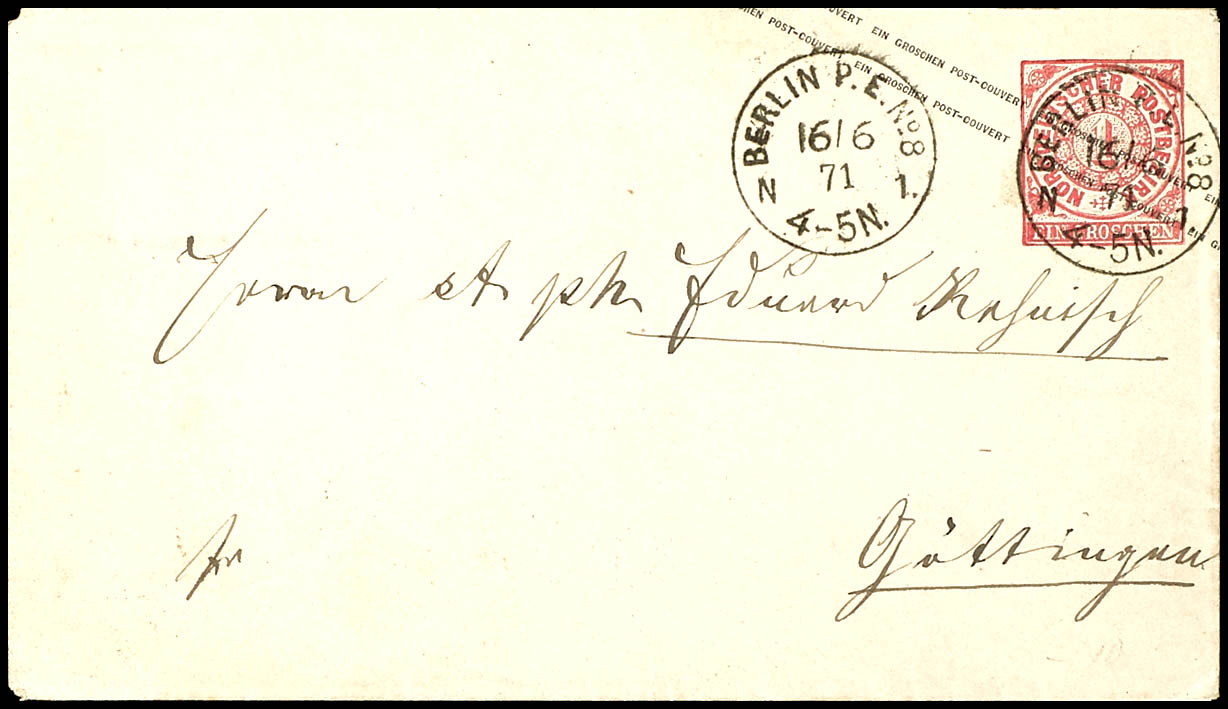 EIN GROSCHEN POST-COUVERT
POST-COUVERT EIN GROSCHEN POST-COUVERT
BERLIN P. E. No. 8
16/6
71
N 1.
4-5N.
NORDDEUTSCHER POSTBEZIRK
1
EIN GROSCHEN
BERLIN P. E. No. 8
16/6
71
N 1
4-5N.
Herrn ph. Eduard Rehnisch
Göttingen